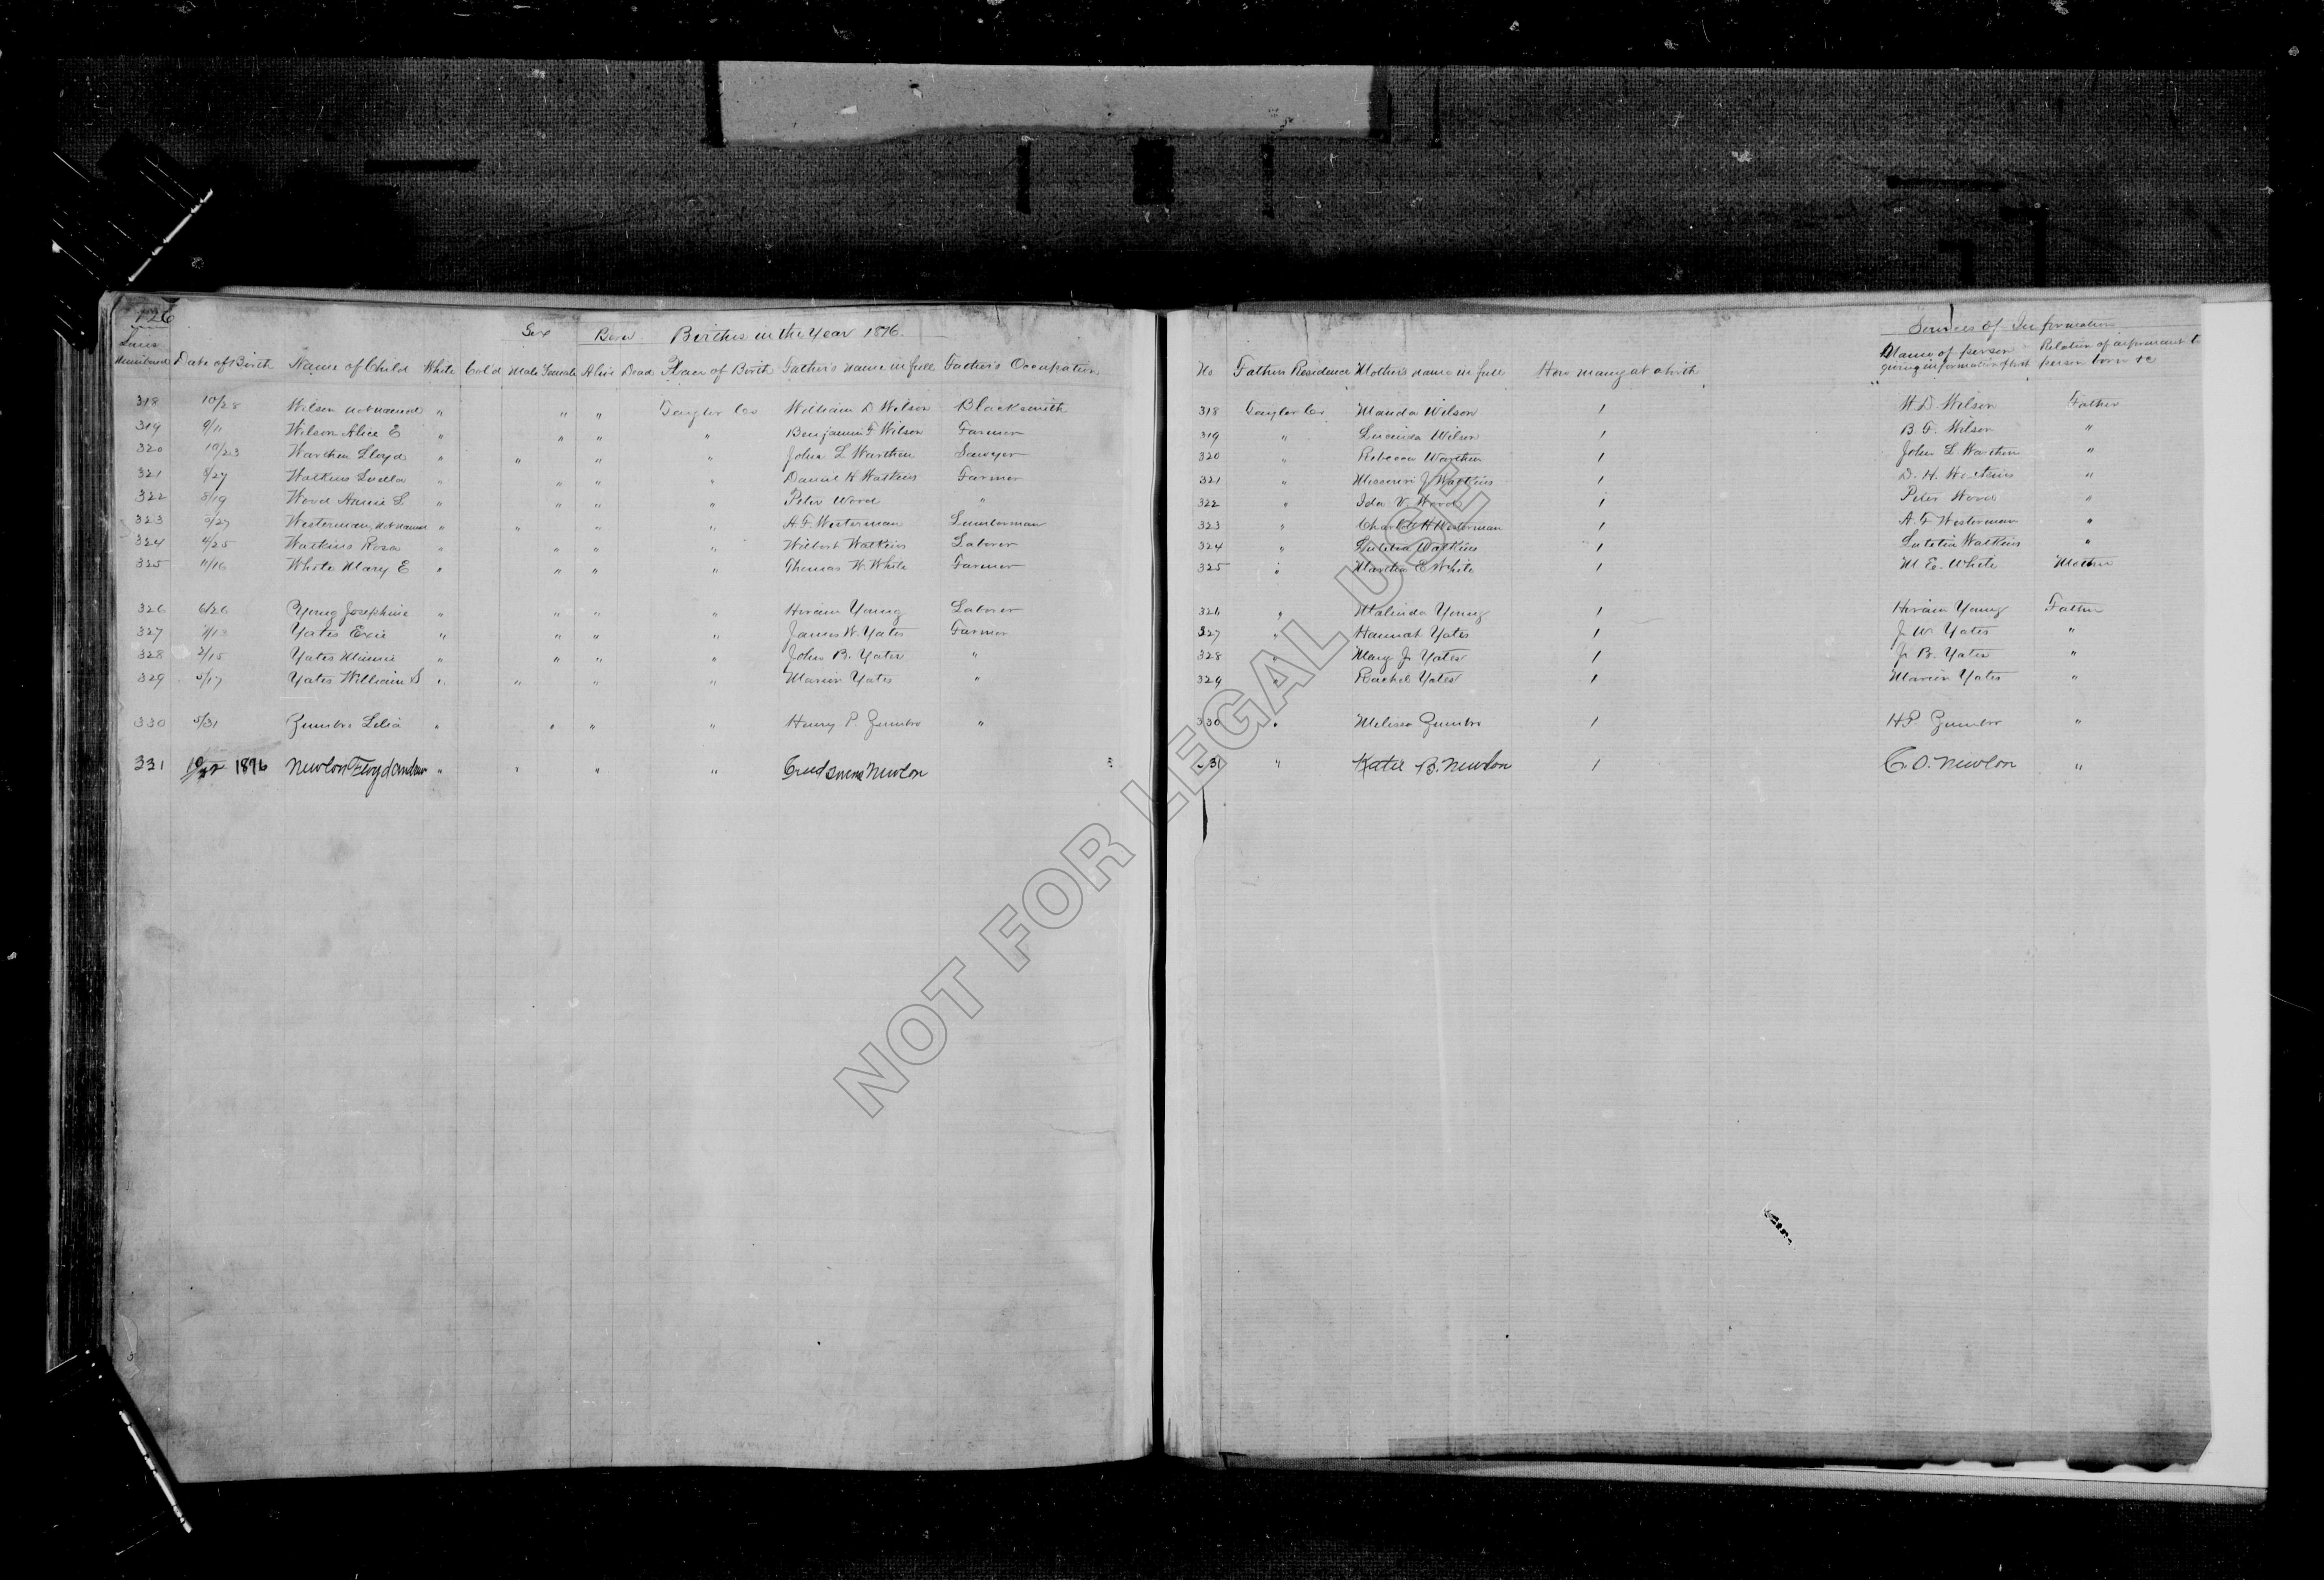 126
Sex Born Births in the Year 1896.
Lines Numbered Date of Birth Name of Child White Cold Male Female Alive Dead Place of Birth Father's name in full Father's Occupation
318 10/28 Wilson not named " " " Taylor Co William D Wilson Blacksmith
319 9/11 Wilson Alice E " " " " Benjamin F Wilson Farmer
320 10/23 Warthen Lloyd " " " " John L Warthen Sawyer
321 8/27 Watkins Luella " " " " Daniel H Watkins Farmer
322 8/19 Word Annie L " " " " Peter Word "
323 5/27 Westerman, not named " " " " A. F. Westerman Lumberman
324 4/25 Watkins Rosa " " " " Wilbert Watkins Laborer
325 11/16 White Mary E " " " " Thomas W. White Farmer
326 6/26 Young Josephine " " " " Hiram Young Laborer
327 Yates Exie " " " " James W. Yates Farmer
328 2/15 Yates Minnie " " " " John B. Yates "
329 5/17 Yates William S " " " " Marion Yates "
330 5/31 Zumbro Lelia " " " " Henry P. Zumbro "
331 1896 Newlon Floyd Andrew " " " " Creed Newlon
Sources of Information
No Fathers Residence Mother's name in full How many at a birth Name of person giving information of birth Relation of informant to person born &c
318 Taylor Co Manda Wilson 1 W. D. Wilson Father
319 " Lucinda Wilson 1 B. F. Wilson "
320 " Rebecca Warthen 1 John L. Warthen "
321 " Missouri J Watkins 1 D. H. Watkins "
322 " Ida V. Word 1 Peter Word "
323 " Charlotte H Westerman 1 A. F. Westerman "
324 " Lutetia Watkins 1 Lutetia Watkins "
325 " Martha E White 1 M E. White Mother
326 " Malinda Young 1 Hiram Young Father
327 " Hannah Yates 1 J. W. Yates "
328 " Mary J. Yates 1 J. B. Yates "
329 " Rachel Yates 1 Marion Yates "
330 " Melissa Zumbro 1 H. P. Zumbro "
" Katie B. Newlon 1 C. O. Newlon "
NOT FOR LEGAL USE